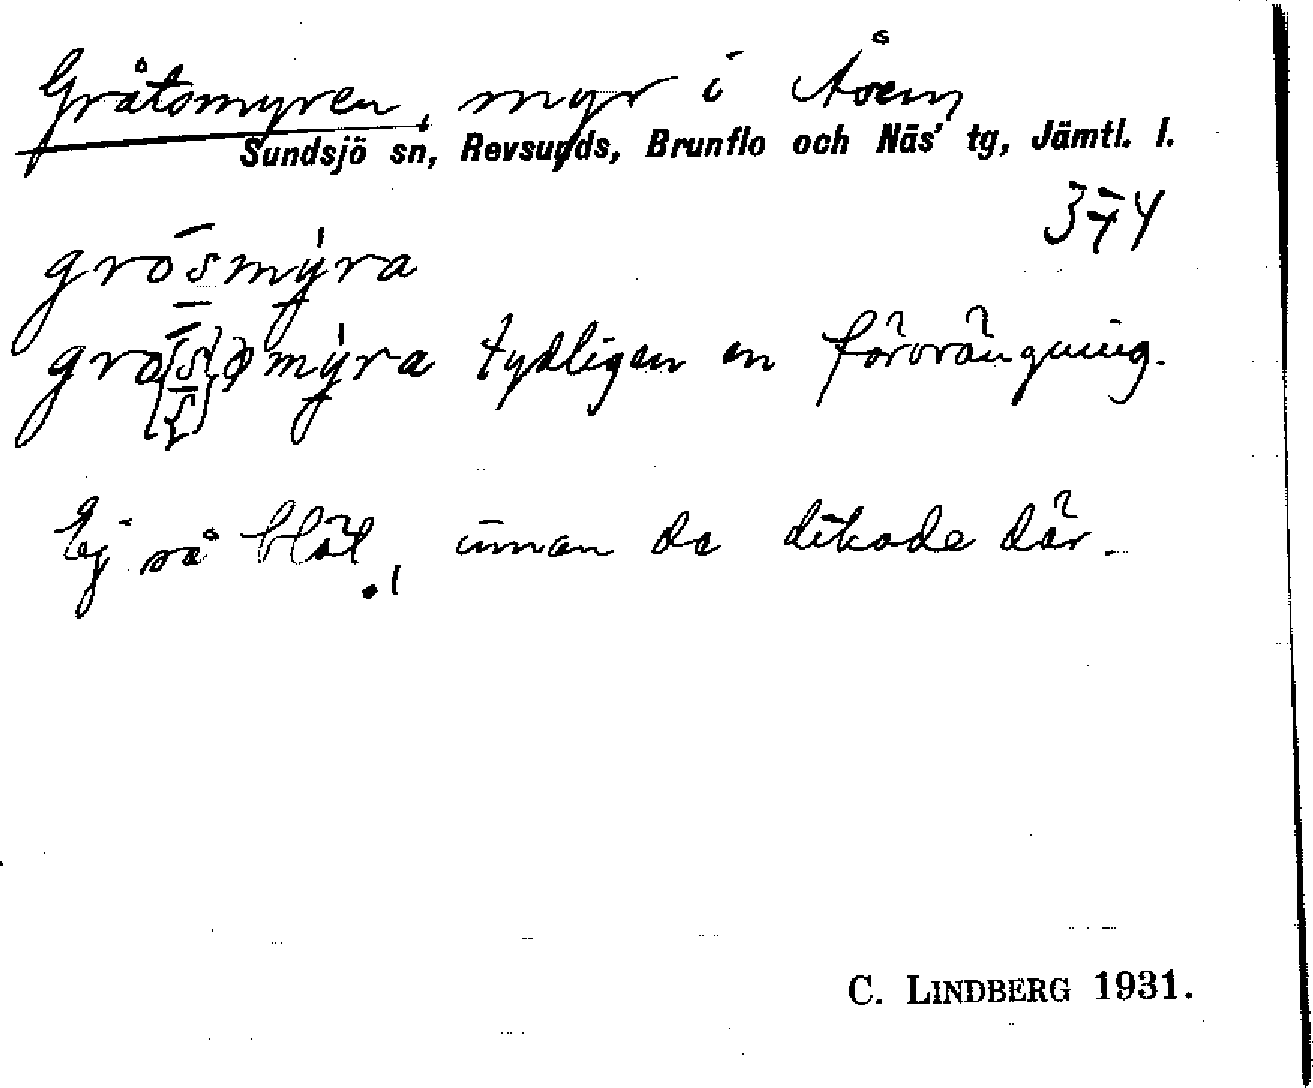 Gråtsmyren, myr i Åsen,
Sundsjö sn, Revsunds, Brunflo och Näs tg, Jämtl. l.
374
grōsmýra
mýra tydligen en förvrängning.
Ej så blöt, innan de dikade där.
C. LINDBERG 1931.